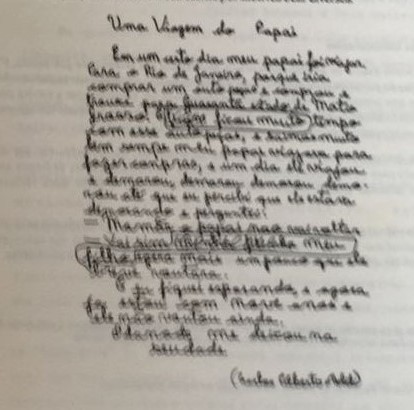 Uma Viagem do Papai
Em um certo dia meu papai foi viajar
Para o Rio de Janeiro, porque iria
comprar um auto peças e comprou e
trouxe para estado de Mato
Grosso. ficou muito tempo
com essa auto peças, e muito
bem sempre meu papai viajava para
fazer compras, e um dia ele viajou
e demorou, demorou, demorou, demo-
rou até que eu percebi que ele estava
demorando e perguntei:
— Mamãe o papai não vai voltar
— Vai sim meu
filho espera mais um pouco que ele
E eu fiquei esperando, e agora
já estou com nove anos e
ele não voltou ainda.
me deixou na
saudade
(Carlos Alberto)